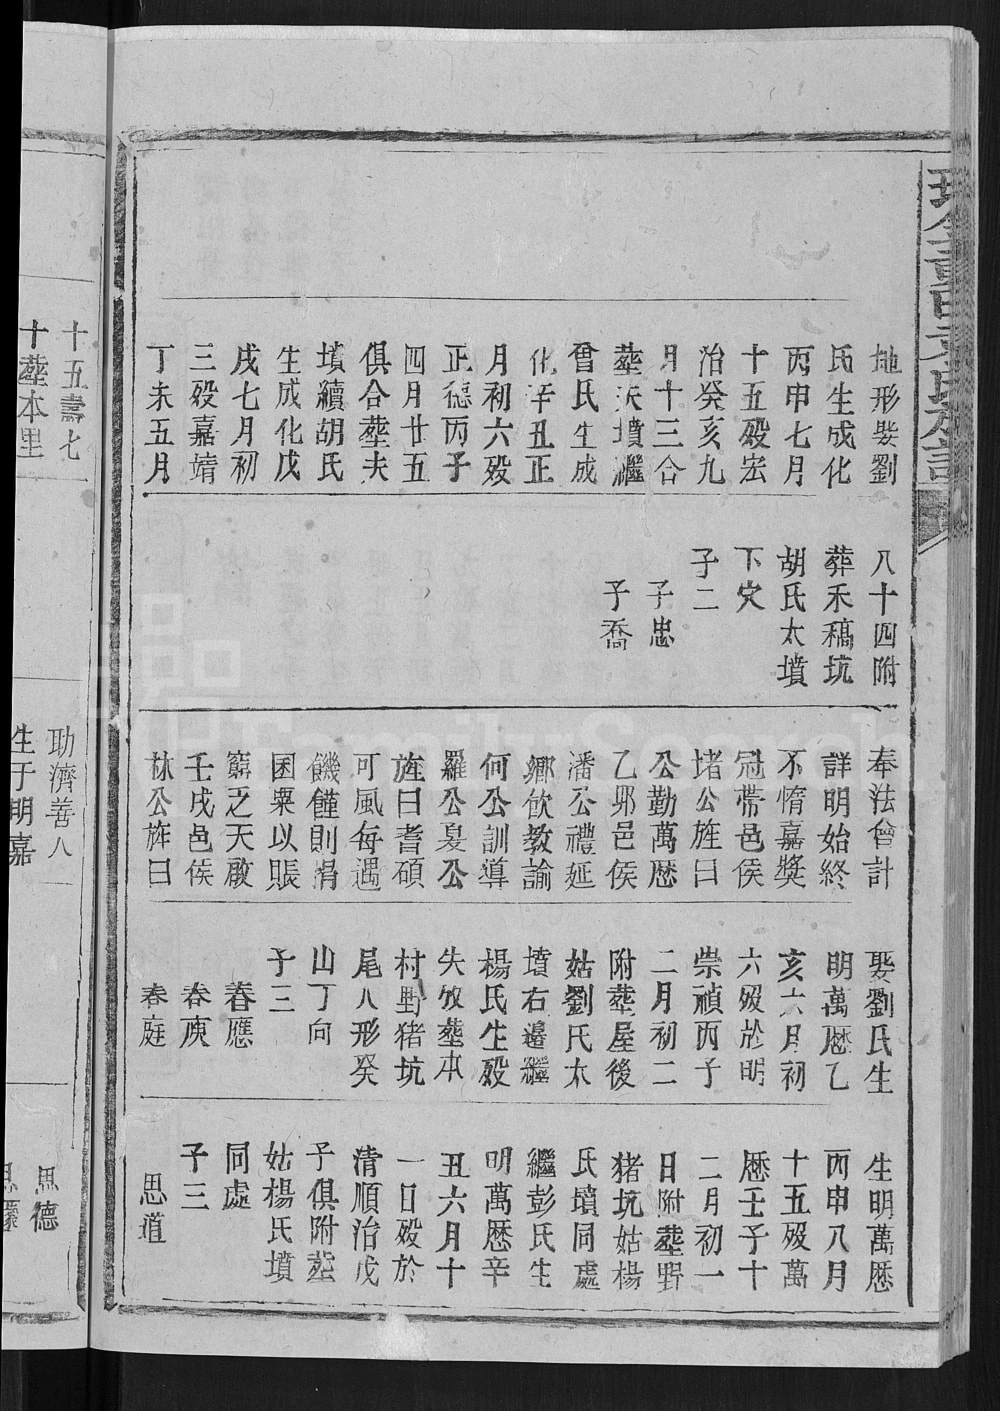 地形娶劉
氏生成化
丙申七月
十五殁宏
治癸亥九
月十三合
塟夫墳繼
曾氏生成
化辛丑正
月初六殁
正德丙子
四月廿五
俱合塟夫
墳續胡氏
生成化戊
戌七月初
三殁嘉靖
丁未五月
八十四附
葬禾稿坑
胡氏太墳
下穴
子二
子忠
子喬
奉法會計
詳明始終
不惰嘉獎
冠帶邑侯
堵公旌曰
公勤萬厯
乙邜邑侯
潘公禮延
鄉飲教諭
何公訓導
羅公㫤公
旌曰耆碩
可風每遇
饑饉則捐
囷粟以賑
窮乏天啟
壬戌邑侯
林公旌曰
娶劉氏生
明萬厯乙
亥六月初
六殁於明
崇禎丙子
二月初二
附塟屋後
姑劉氏太
墳右邉繼
楊氏生殁
失攷塟本
村野猪坑
尾人形癸
山丁向
子三
春應
春庚
春庭
生明萬厯
丙申八月
十五殁萬
厯壬子十
二月初一
日附塟野
猪坑姑楊
氏墳同處
繼彭氏生
明萬厯辛
丑六月十
一日殁於
清順治戊
子俱附塟
姑楊氏墳
同處
子三
思道
十五壽七
十塟本里
助濟善人
生于明嘉
思德
FamilySearch